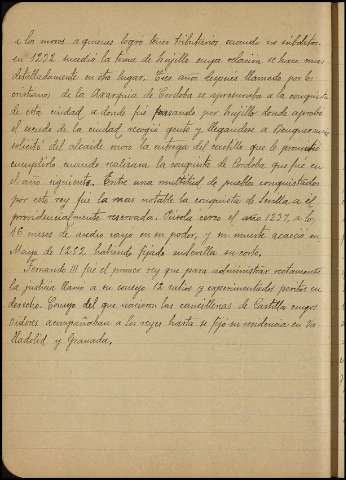 a los moros a quienes logro tener tributarios cuando no súbditos.
en 1232 sucedió la toma de Trujillo cuya relacion se hace mas
detalladamente en otro lugar. Tres años despues llamado por los
cristianos de la Axarquia de Cordoba se apresuraba a la conquista
de esta ciudad a donde fué pasando por Trujillo donde aprobó
el escudo de la ciudad, acogió gente y llegandose a Benquerencia
solicitó del alcaide moro la entrega del castillo que le prometió
cumplirlo cuando realizara la conquista de Cordoba que fué en
el año siguiente. Entre una multitud de pueblos conquistados
por este rey fué la mas notable la conquista de Sevilla a el
providencialmente reservada. Pusola cerco el año 1247, a los
16 meses de asedio cayó en su poder, y su muerte acaeció en
Mayo de 1252 habiendo fijado en Sevilla su corte.
Fernando III fué el primer rey que para administrar rectamente
la justicia llamó a su consejo 12 sabios y experimentados peritos en
derecho. Consejo del que nacieron las cancillerias de Castilla cuyos
oidores acompañaban a los reyes hasta se fijó su residencia en Va-
lladolid y Granada.